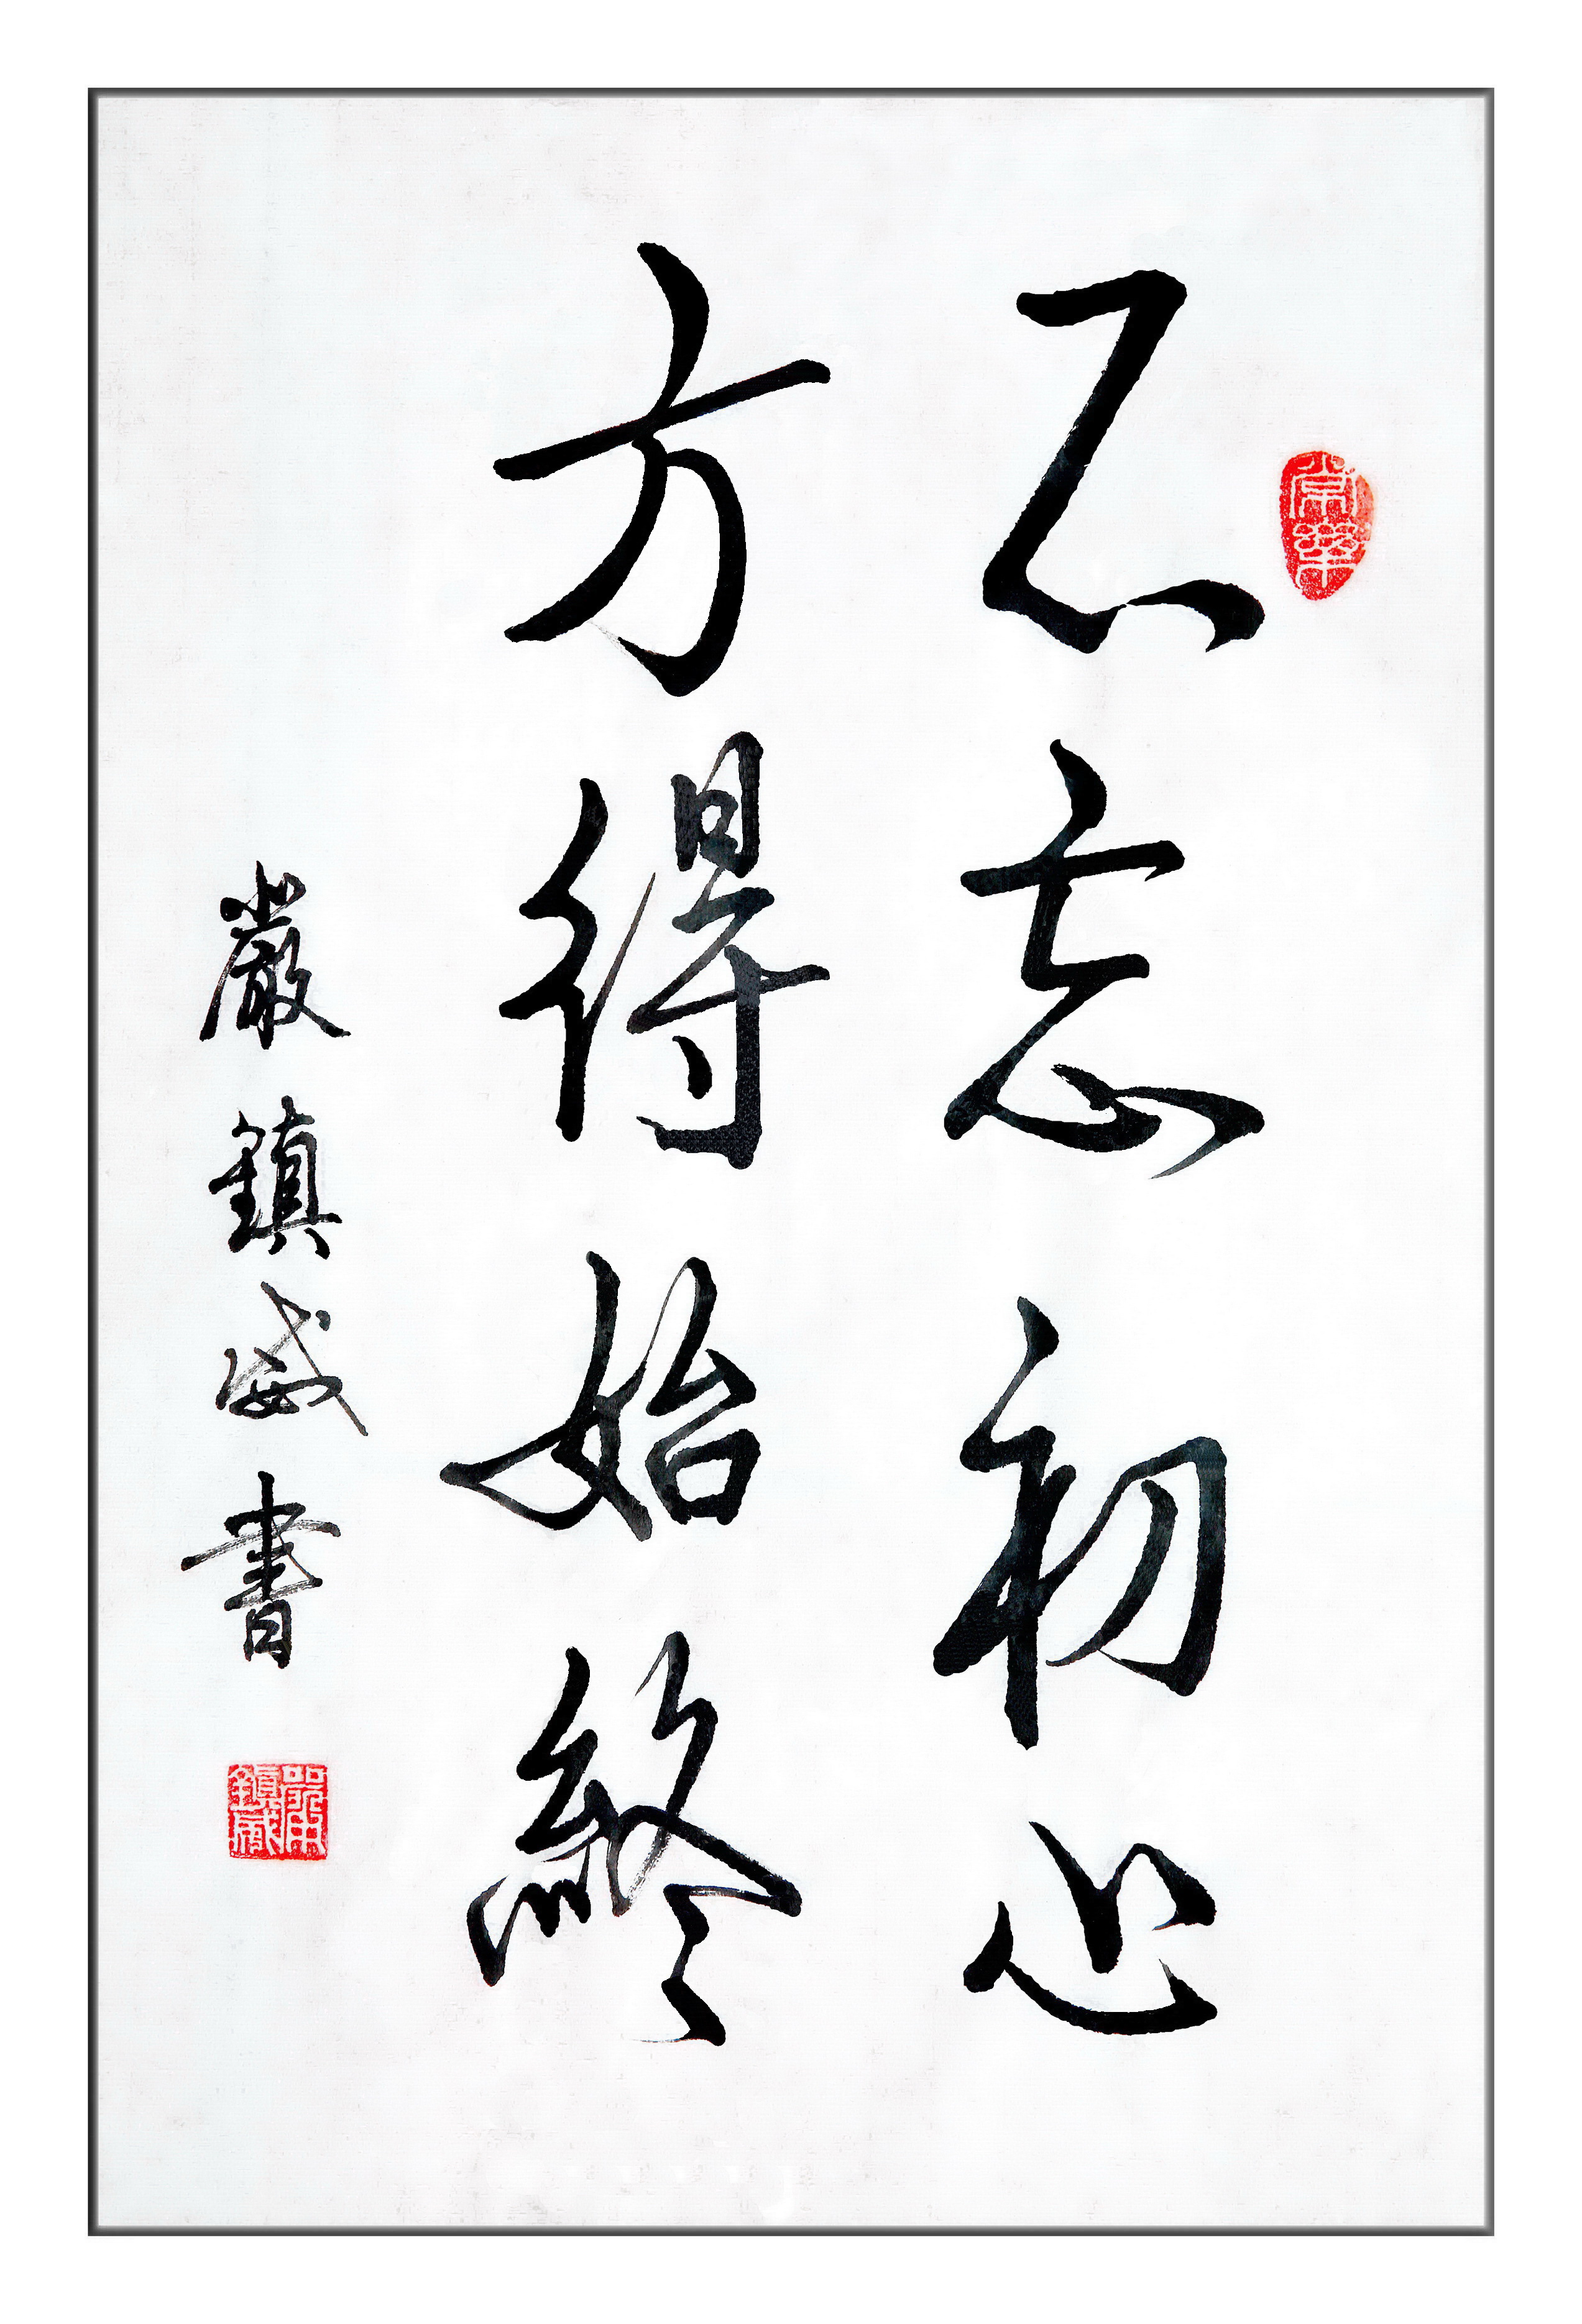 不忘初心
方得始終
嚴鎮威書
嚴鎮威